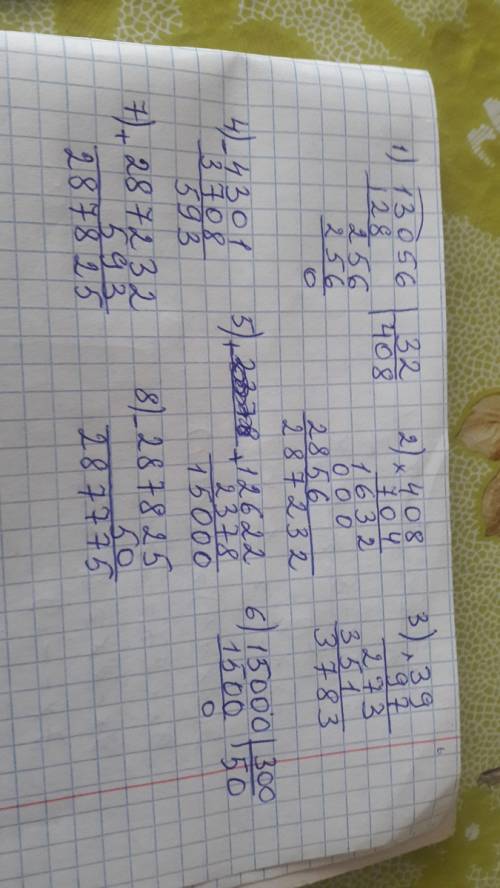 1) 13056 | 32
128 | 408
256
256
0
2) × 408
704
1632
000
2856
287232
3) × 39
97
273
351
3783
4) - 4301
3708
593
5) + 12622
2378
15000
6) 15000 | 300
1500 | 50
0
7) + 287232
593
287825
8) - 287825
50
287775